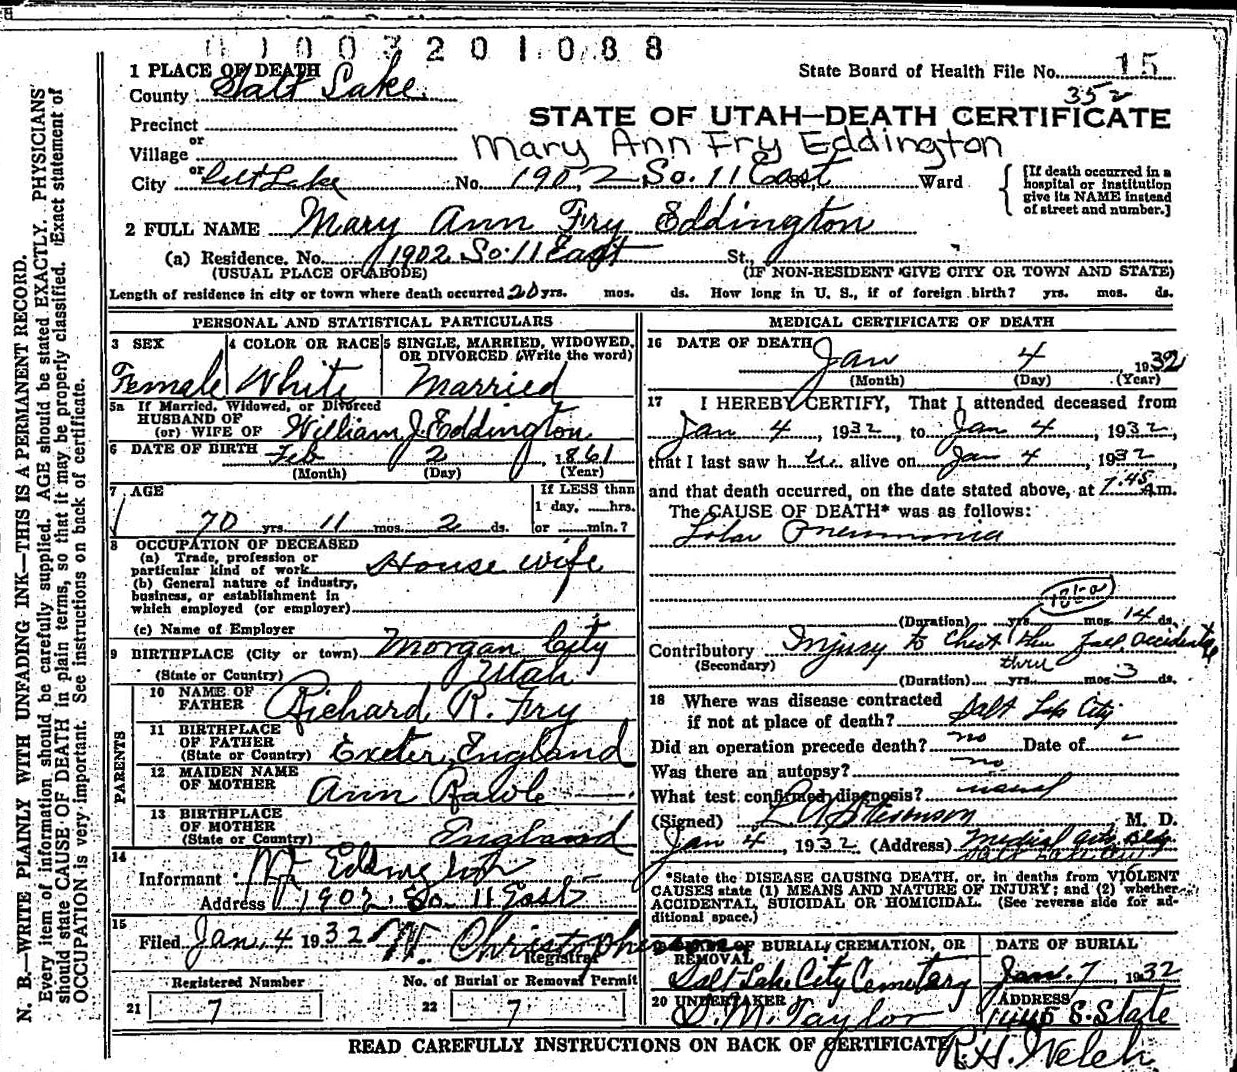 0 1 0 0 3 2 0 1 0 8 8
1 PLACE OF DEATH
State Board of Health File No. 15
352
County Salt Lake
STATE OF UTAH—DEATH CERTIFICATE
Precinct
or
Village
Mary Ann Fry Eddington
or
City Salt Lake No. 1902 So. 11 East Ward
[If death occurred in a
hospital or institution
give its NAME instead
of street and number.]
2 FULL NAME Mary Ann Fry Eddington
(a) Residence. No. 1902 So. 11 East St.,
(USUAL PLACE OF ABODE) (IF NON-RESIDENT GIVE CITY OR TOWN AND STATE)
Length of residence in city or town where death occurred 20 yrs. mos. ds. How long in U. S., if of foreign birth? yrs. mos. ds.
PERSONAL AND STATISTICAL PARTICULARS
3 SEX 4 COLOR OR RACE 5 SINGLE, MARRIED, WIDOWED,
OR DIVORCED (Write the word)
Female White Married
5a If Married, Widowed, or Divorced
HUSBAND OF
(or) WIFE OF William J. Eddington
6 DATE OF BIRTH Feb 2, 1861
(Month) (Day) (Year)
7 AGE If LESS than
1 day, ....hrs.
70 yrs. 11 mos. 2 ds. or ....min.?
8 OCCUPATION OF DECEASED
(a) Trade, profession or
particular kind of work House wife
(b) General nature of industry,
business, or establishment in
which employed (or employer)
(c) Name of Employer
9 BIRTHPLACE (City or town) Morgan City
(State or Country) Utah
PARENTS
10 NAME OF
FATHER Richard R. Fry
11 BIRTHPLACE
OF FATHER
(State or Country) Exeter, England
12 MAIDEN NAME
OF MOTHER Ann Rawle
13 BIRTHPLACE
OF MOTHER
(State or Country) England
14
Informant Wm Eddington
Address 1902 So. 11 East
15
Filed Jan. 4 1932 W. Christopherson
Registrar
Registered Number No. of Burial or Removal Permit
21 7 22 7
MEDICAL CERTIFICATE OF DEATH
16 DATE OF DEATH
Jan 4, 1932
(Month) (Day) (Year)
17 I HEREBY CERTIFY, That I attended deceased from
Jan 4, 1932, to Jan 4, 1932,
that I last saw her alive on Jan 4, 1932
and that death occurred, on the date stated above, at 7.45 A.m.
The CAUSE OF DEATH* was as follows:
Lobar Pneumonia
(Duration) yrs. mos. 14 ds.
Contributory Injury to Chest thru fall, accidental
(Secondary) thru
(Duration) yrs. mos. 3 ds.
18 Where was disease contracted
if not at place of death? Salt Lk City
Did an operation precede death? no Date of
Was there an autopsy? no
What test confirmed diagnosis? usual
(Signed) L. A. Stevenson, M. D.
Jan 4, 1932 (Address) Medical Arts Bldg
Salt Lake City
*State the DISEASE CAUSING DEATH, or, in deaths from VIOLENT
CAUSES state (1) MEANS AND NATURE OF INJURY; and (2) whether
ACCIDENTAL, SUICIDAL OR HOMICIDAL. (See reverse side for ad-
ditional space.)
OF BURIAL, CREMATION, OR
REMOVAL
Salt Lake City Cemetery
DATE OF BURIAL
Jan. 7, 1932
20 UNDERTAKER
S. M. Taylor
ADDRESS
S. State
READ CAREFULLY INSTRUCTIONS ON BACK OF CERTIFICATE
R. H. Welch
N. B.—WRITE PLAINLY WITH UNFADING INK—THIS IS A PERMANENT RECORD.
Every item of information should be carefully supplied. AGE should be stated EXACTLY. PHYSICIANS
should state CAUSE OF DEATH in plain terms, so that it may be properly classified. Exact statement of
OCCUPATION is very important. See instructions on back of certificate.